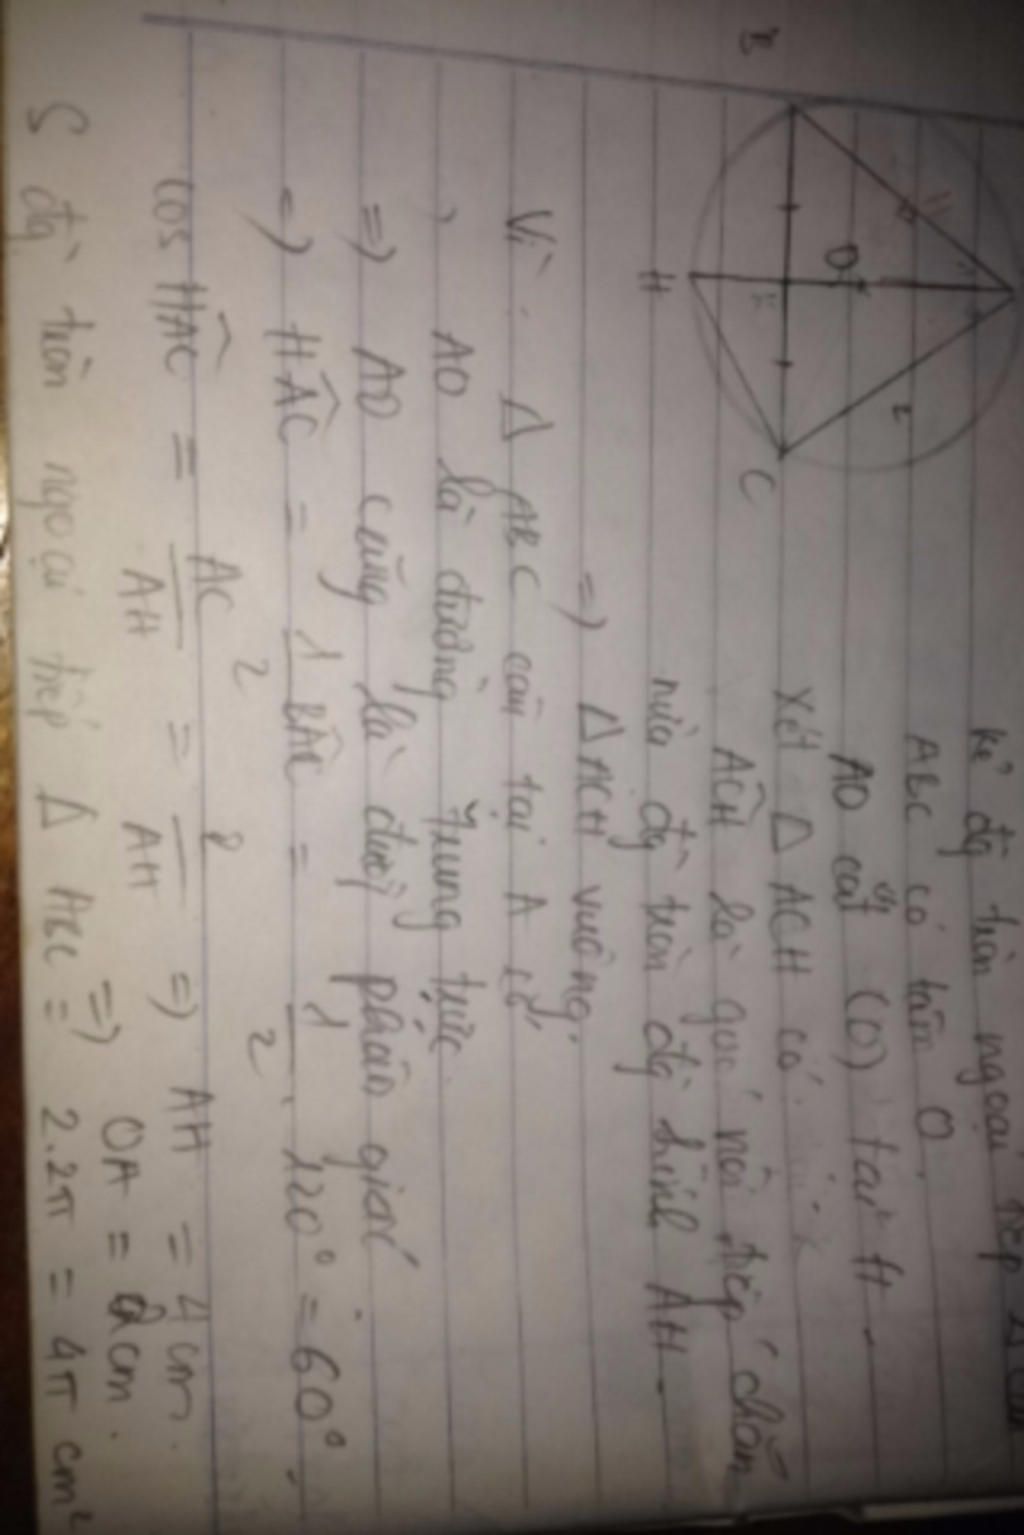 kẻ đg tròn ngoại tiếp Δ
ABC có tâm O.
AO cắt (O) tại H.
Xét Δ ACH có:
ACH là góc nội tiếp chắn
nửa đg tròn đg kính AH.
=> Δ ACH vuông.
Vì Δ ABC cân tại A có
AO là đường trung trực.
=> AO cũng là đường phân giác
=> HAC = 1/2 BAC = 1/2 . 120° = 60°.
cos HAC = AC/AH = 2/AH => AH = 4 cm.
=> OA = 2cm.
S đg tròn ngoại tiếp Δ ABC = 2.2π = 4π cm²
B
H
O
C
2